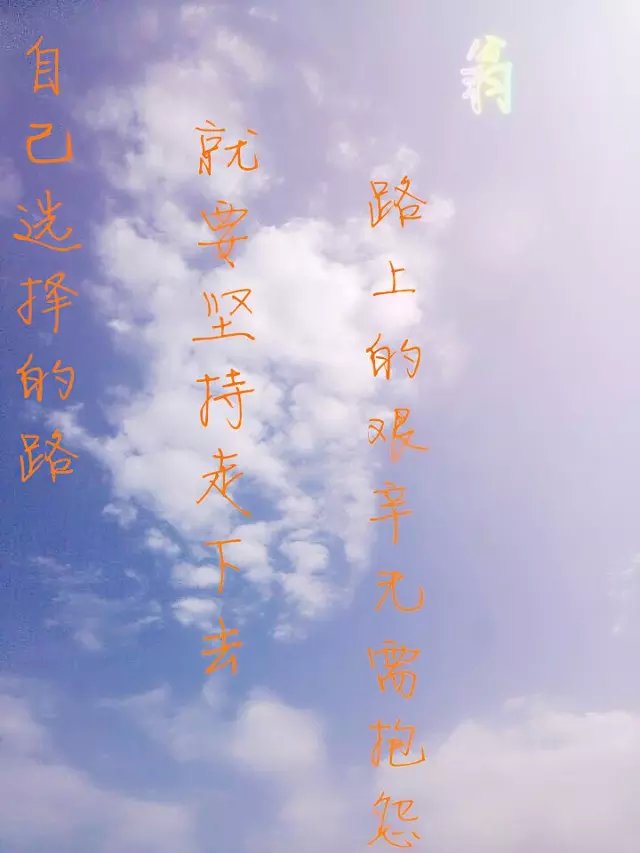 自己选择的路
就要坚持走下去
路上的艰辛无需抱怨
翁